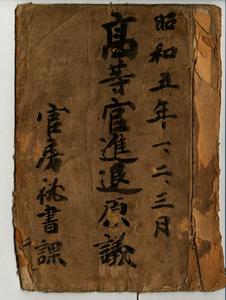 昭和五年一、二、三月
高等官進退原議
官房秘書課